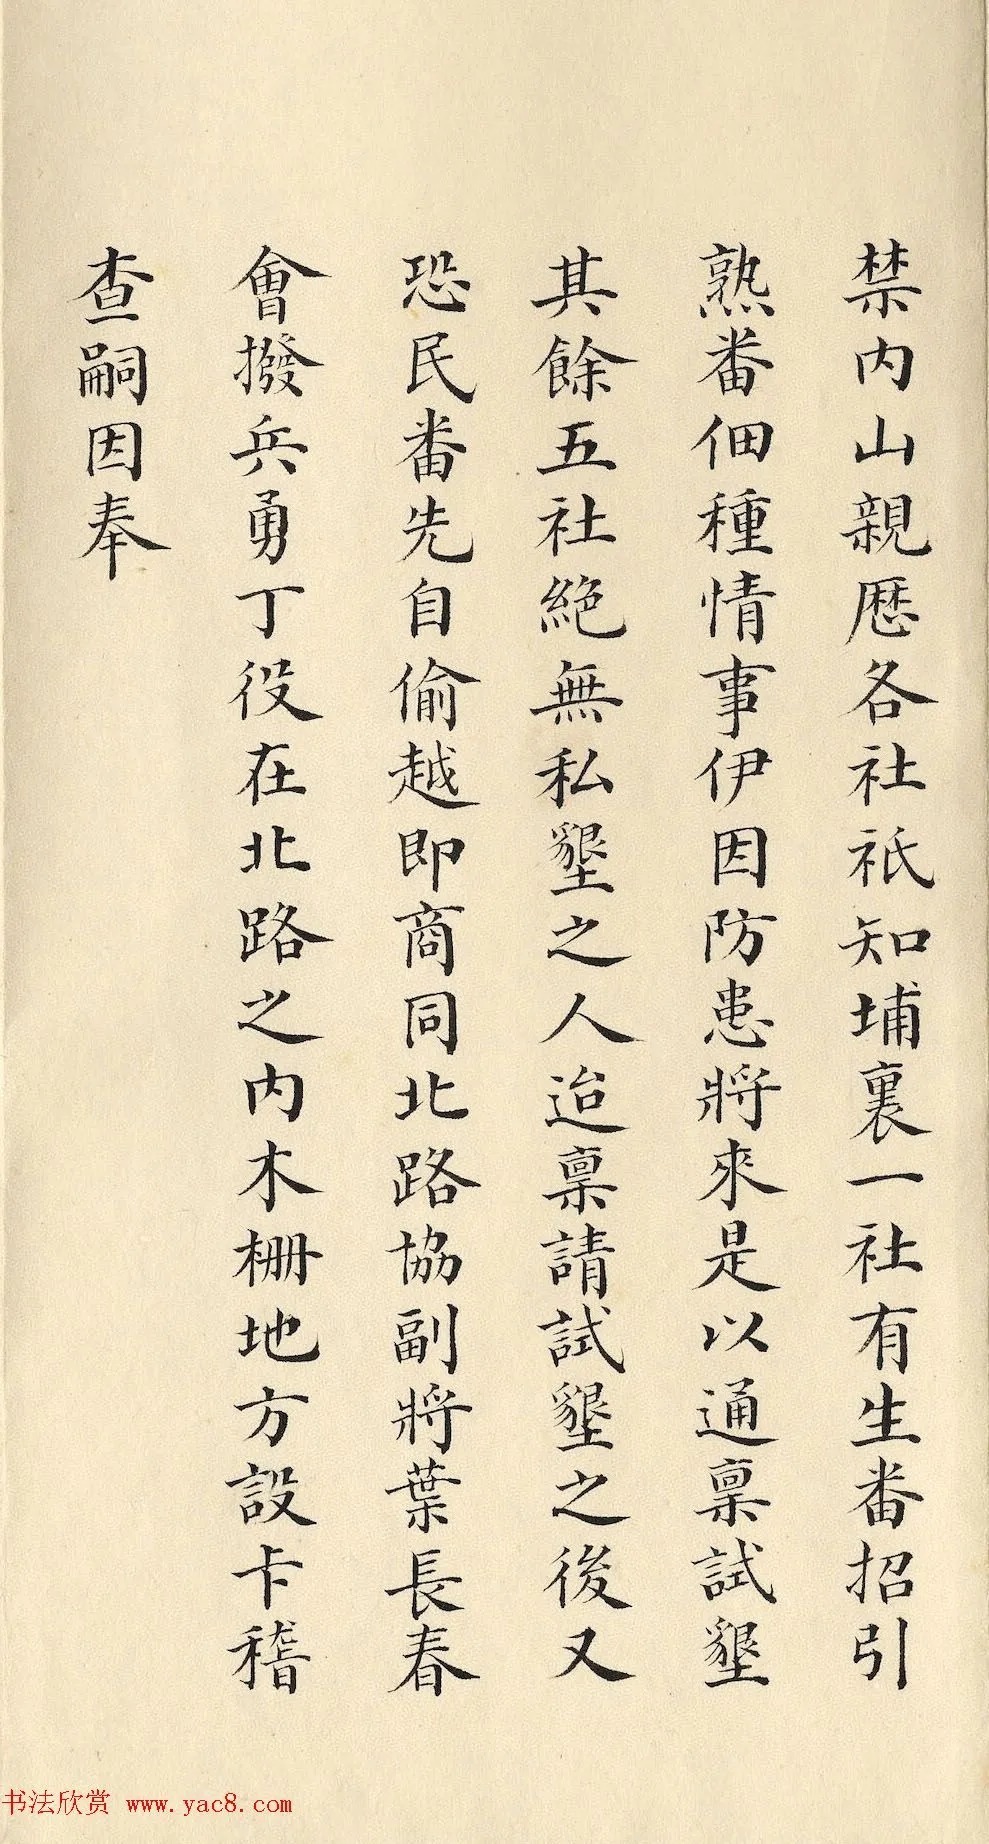 禁內山親歴各社祇知埔裏一社有生番招引
熟番佃種情事伊因防患將來是以通稟試墾
其餘五社絶無私墾之人迨稟請試墾之後又
恐民番先自偷越即商同北路協副將葉長春
會撥兵勇丁役在北路之内木栅地方設卡稽
查嗣因奉
书法欣赏 www.yac8.com